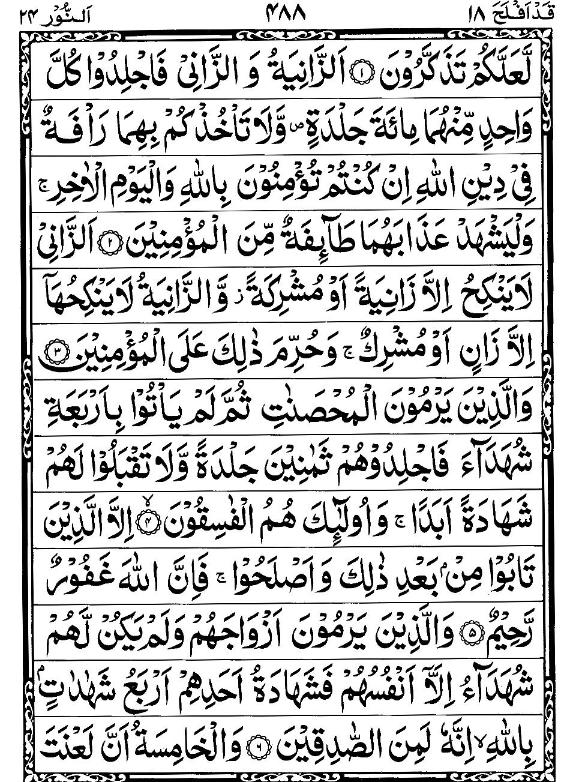 قَدْ اَفْلَحَ ١٨ ۴٨٨ اَلنُّوْر ٢۴
لَّعَلَّكُمْ تَذَكَّرُوْنَ ﴿۱﴾ اَلزَّانِيَةُ وَ الزَّانِیْ فَاجْلِدُوْا كُلَّ
وَاحِدٍ مِّنْهُمَا مِائَةَ جَلْدَةٍ ۪ وَّلَا تَاْخُذْكُمْ بِهِمَا رَاْفَةٌ
فِیْ دِيْنِ اللّٰهِ اِنْ كُنْتُمْ تُؤْمِنُوْنَ بِاللّٰهِ وَالْيَوْمِ الْاٰخِرِ ۚ
وَلْيَشْهَدْ عَذَابَهُمَا طَآئِفَةٌ مِّنَ الْمُؤْمِنِيْنَ ﴿۲﴾ اَلزَّانِیْ
لَا يَنْكِحُ اِلَّا زَانِيَةً اَوْ مُشْرِكَةً ؗ وَّ الزَّانِيَةُ لَا يَنْكِحُهَاۤ
اِلَّا زَانٍ اَوْ مُشْرِكٌ ۚ وَحُرِّمَ ذٰلِكَ عَلَی الْمُؤْمِنِيْنَ ﴿۳﴾
وَالَّذِيْنَ يَرْمُوْنَ الْمُحْصَنٰتِ ثُمَّ لَمْ يَاْتُوْا بِاَرْبَعَةِ
شُهَدَآءَ فَاجْلِدُوْهُمْ ثَمٰنِيْنَ جَلْدَةً وَّلَا تَقْبَلُوْا لَهُمْ
شَهَادَةً اَبَدًا ۚ وَاُولٰٓئِكَ هُمُ الْفٰسِقُوْنَ ﴿۴﴾ ۙ اِلَّا الَّذِيْنَ
تَابُوْا مِنْۢ بَعْدِ ذٰلِكَ وَاَصْلَحُوْا ۚ فَاِنَّ اللّٰهَ غَفُوْرٌ
رَّحِيْمٌ ﴿۵﴾ وَالَّذِيْنَ يَرْمُوْنَ اَزْوَاجَهُمْ وَلَمْ يَكُنْ لَّهُمْ
شُهَدَآءُ اِلَّاۤ اَنْفُسُهُمْ فَشَهَادَةُ اَحَدِهِمْ اَرْبَعُ شَهٰدٰتٍۭ
بِاللّٰهِ ۙ اِنَّهٗ لَمِنَ الصّٰدِقِيْنَ ﴿۶﴾ وَالْخَامِسَةُ اَنَّ لَعْنَتَ